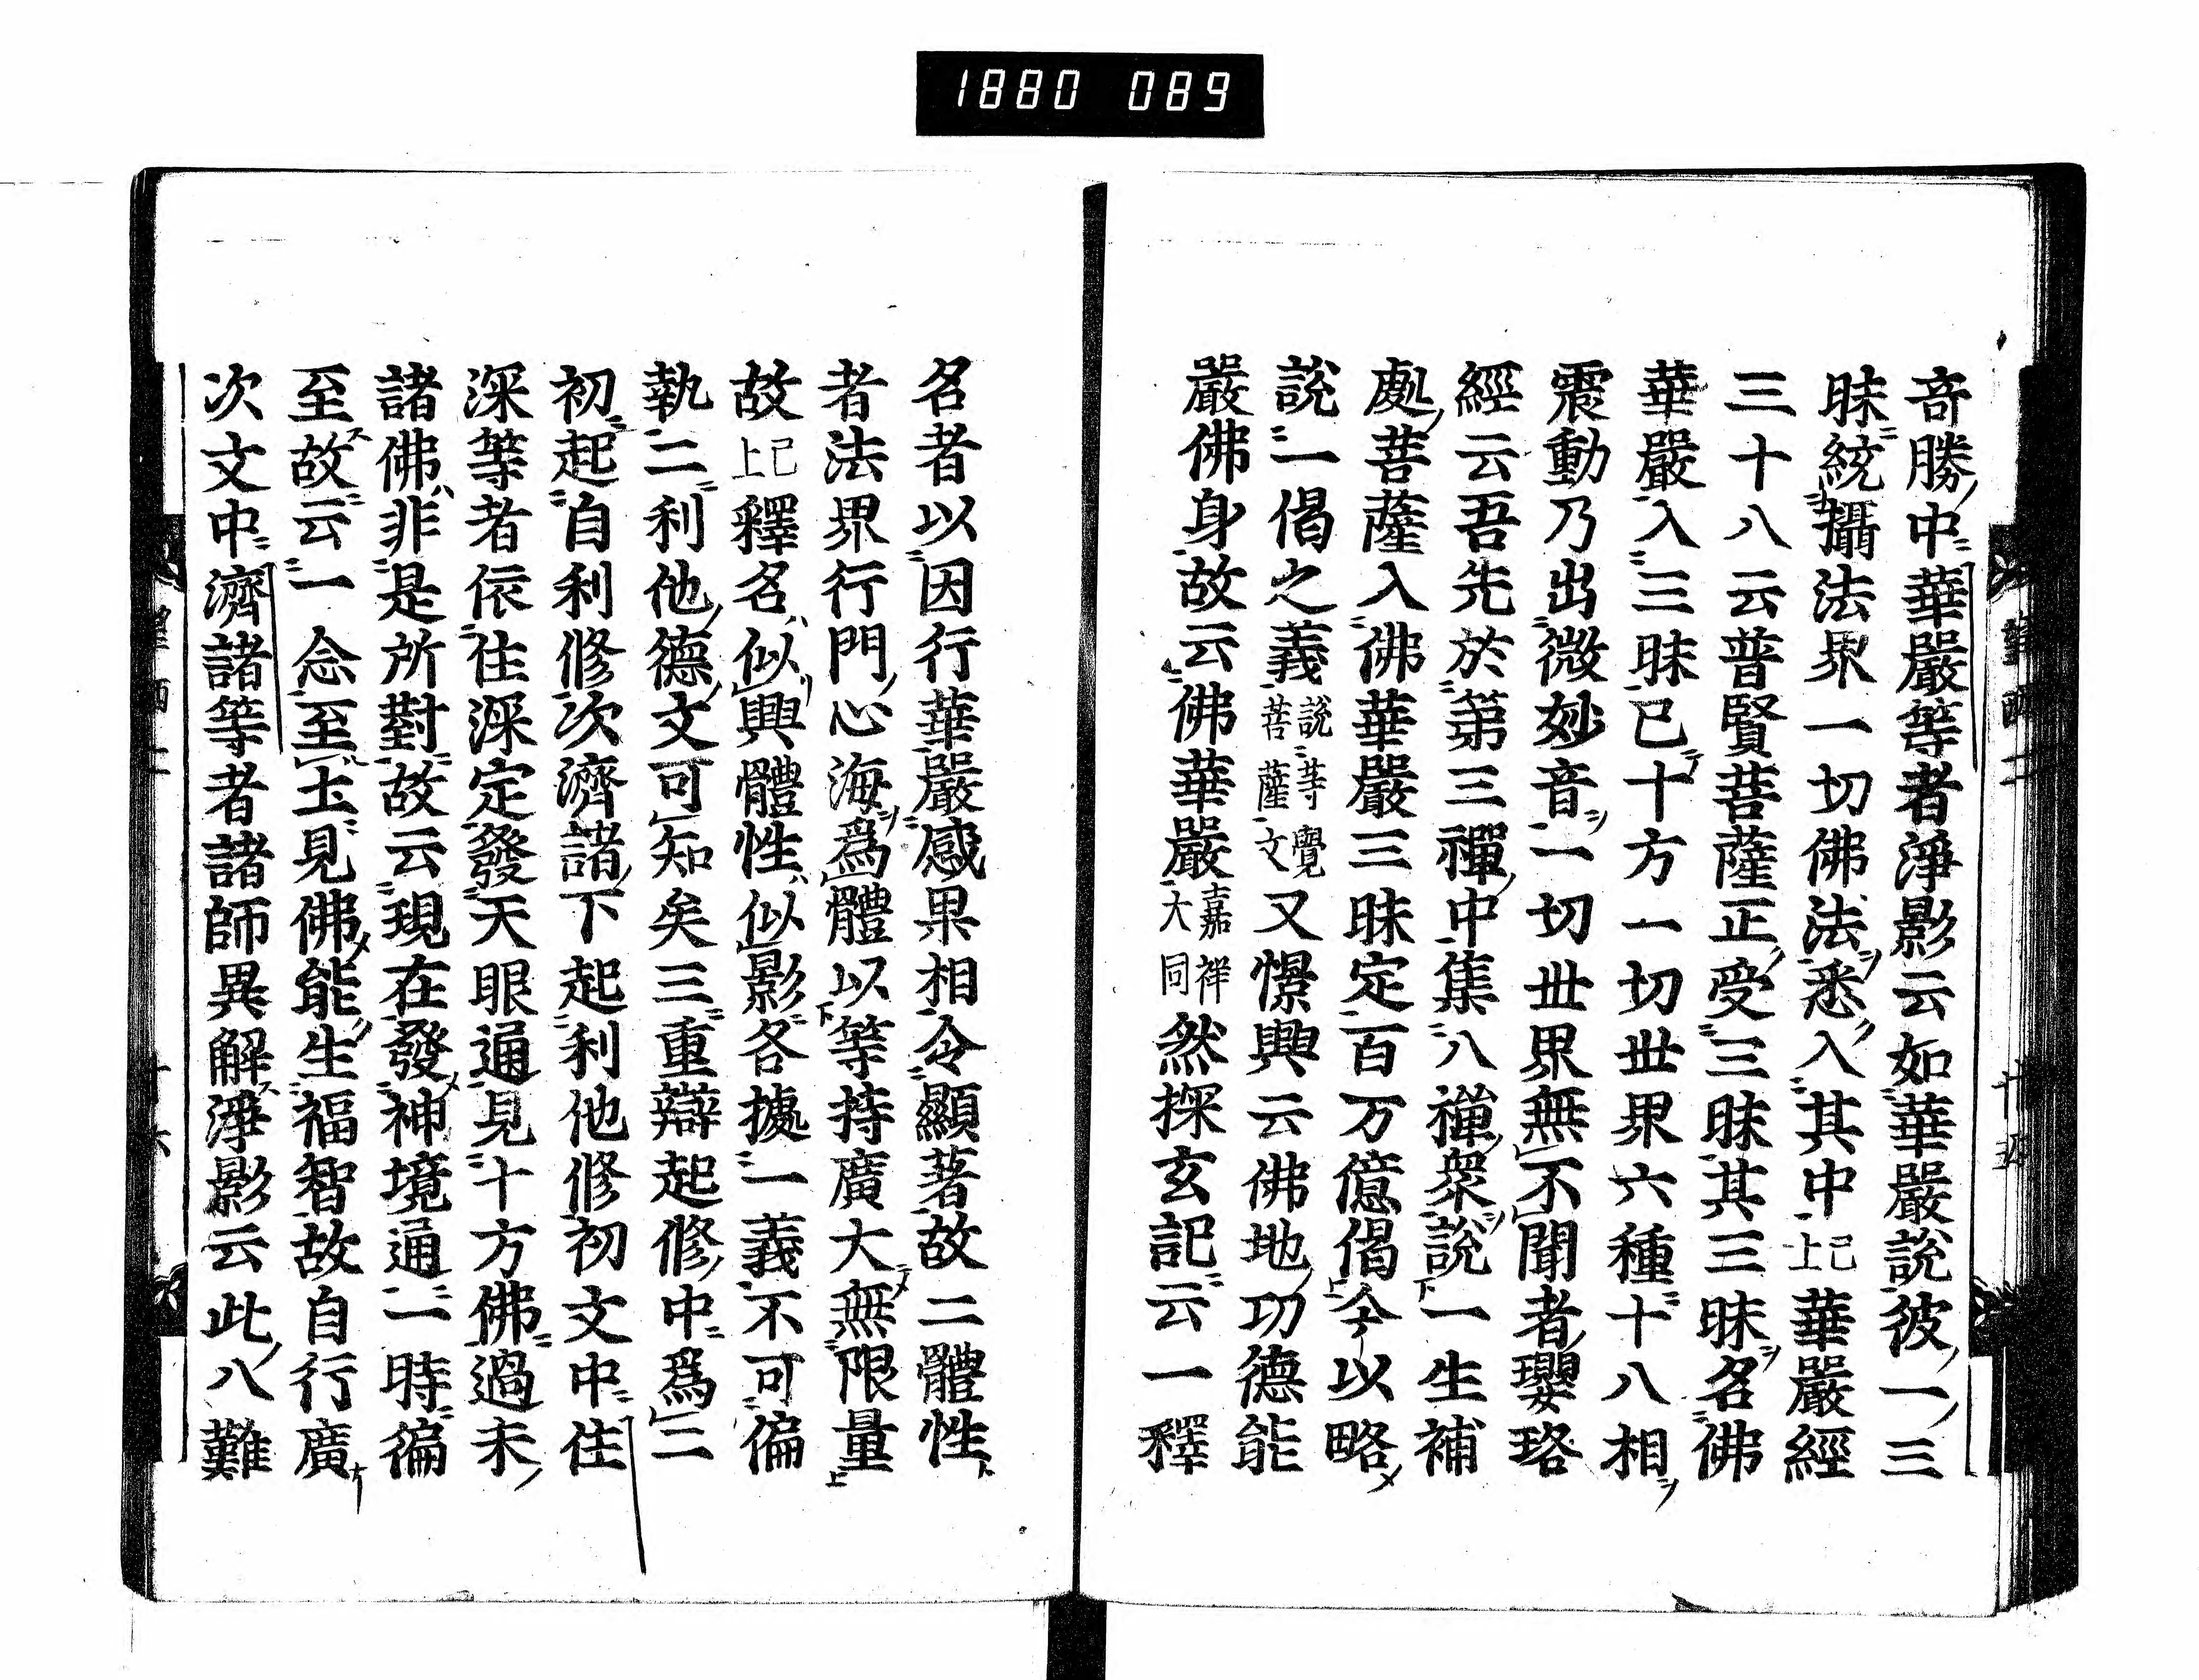 1880 089
竒勝中華嚴等者淨影云如華嚴說彼一三
昧統攝法界一切佛法悉入其中已上華嚴經
三十八云普賢菩薩正受三昧其三昧名佛
華嚴入三昧已十方一切世界六種十八相
震動乃出微妙音一切世界無不聞者瓔珞
經云吾先於第三禪中集八禪衆說一生補
處菩薩入佛華嚴三昧定百万億偈今以略
說一偈之義說等覺菩薩文又憬興云佛地功德能
嚴佛身故云佛華嚴嘉祥大同然探玄記云一釋
名者以因行華嚴感果相令顯著故二體性
者法界行門心海爲體以等持廣大無限量
故已上釋名似興體性似影各據一義不可偏
執二利他德文可知矣三重辯起修中爲二
初起自利修次濟諸下起利他修初文中住
深等者依住深定發天眼通見十方佛過未
諸佛非是所對故云現在發神境通一時徧
至故云一念至土見佛能生福智故自行廣
次文中濟諸等者諸師異解淨影云此八難